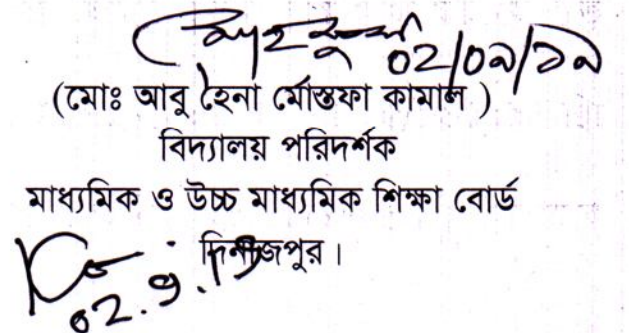 ০২/০৯/১৯
(মোঃ আবু হৈনা মোস্তফা কামাল )
বিদ্যালয় পরিদর্শক
মাধ্যমিক ও উচ্চ মাধ্যমিক শিক্ষা বোর্ড
দিনাজপুর।
02.9.19